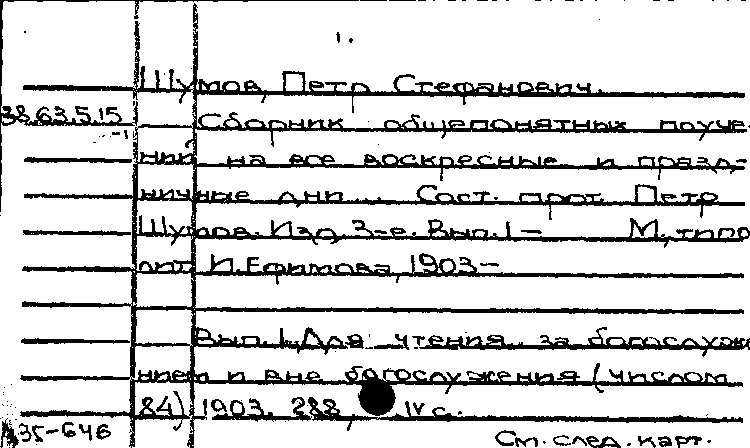 1.
Шумов, Петр Стефанович.
38.63.5.15
-1
Сборник общепонятных поуче-
ний на все воскресные и празд-
ничные дни... Сост. прот. Петр
Шумов. Изд. 3-е. Вып. 1- М., типо
лит. И. Ефимова, 1903-
Вып. 1. Для чтения за богослуже
нием и вне богослужения (числом
84) 1903. 288, IV с.
35-646
См. след. карт.